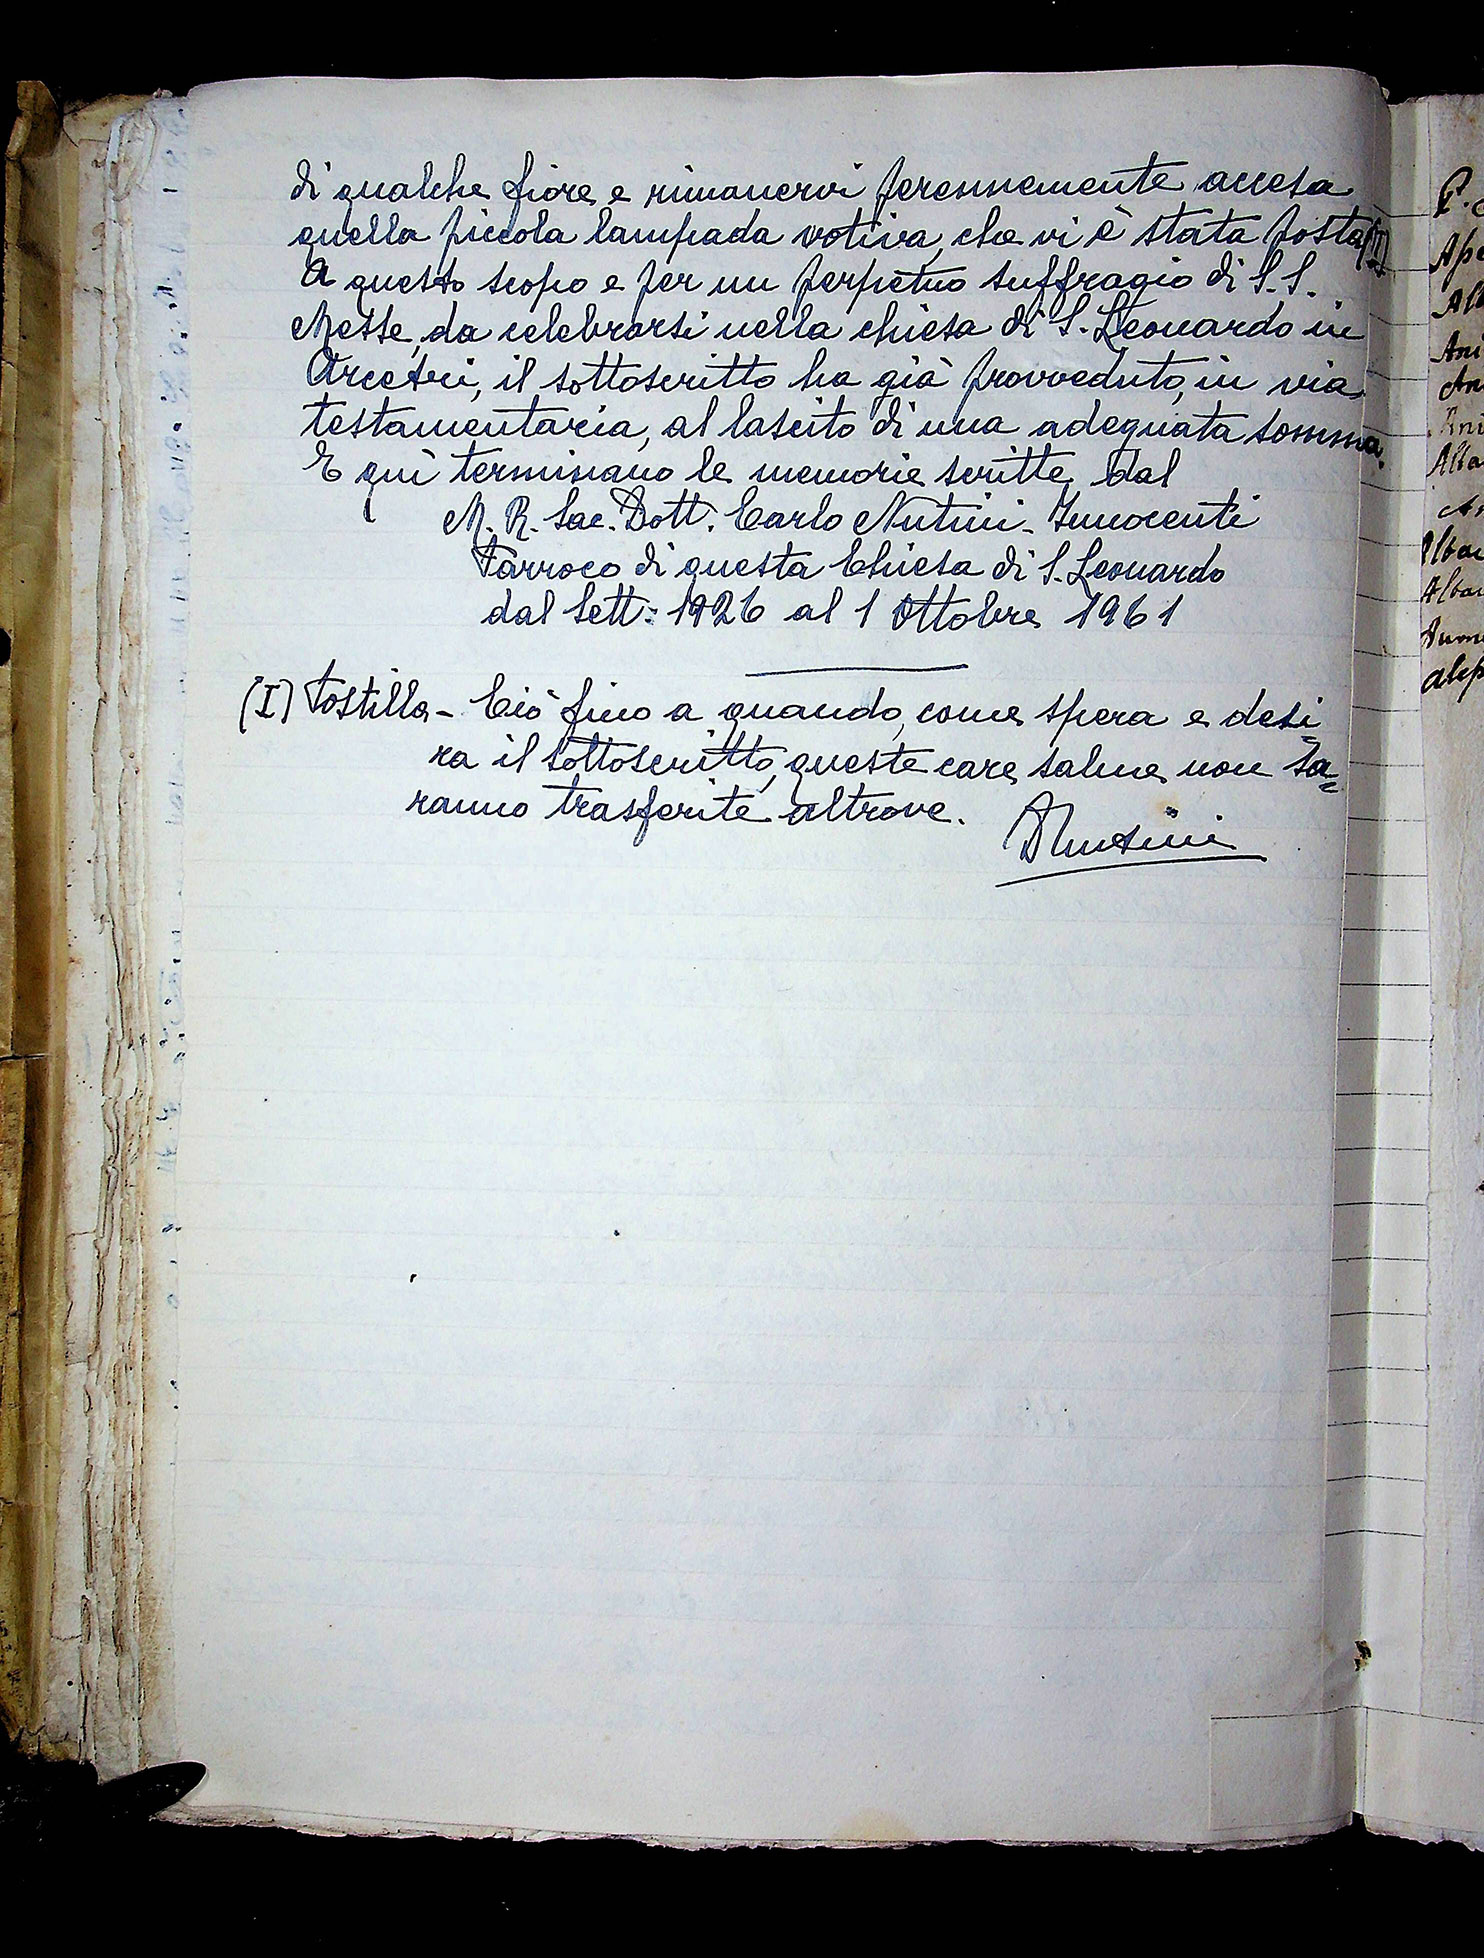 di qualche fiore e rimanervi perennemente accesa
quella piccola lampada votiva, che vi è stata posta (I)
A questo scopo e per un perpetuo suffragio di S.S.
Messe, da celebrarsi nella chiesa di S. Leonardo in
Arcetri, il sottoscritto ha già provveduto, in via
testamentaria, al lascito di una adeguata somma.
E qui terminano le memorie scritte dal
M. R. Sac. Dott. Carlo Nutini - Innocenti
Parroco di questa Chiesa di S. Leonardo
dal Sett: 1926 al 1 Ottobre 1961
(I) Postilla - Ciò fino a quando, come spera e desi=
ra il sottoscritto, queste care salme non sa=
ranno trasferite altrove.
Nutini